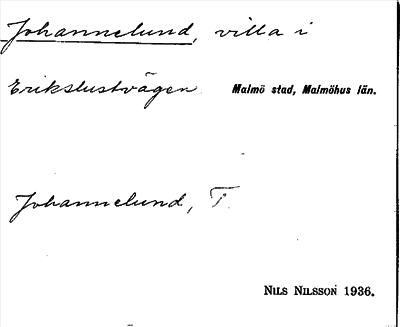 Johannelund, villa i
Erikslustvägen. Malmö stad, Malmöhus län.
Johannelund, T.
NILS NILSSON 1936.